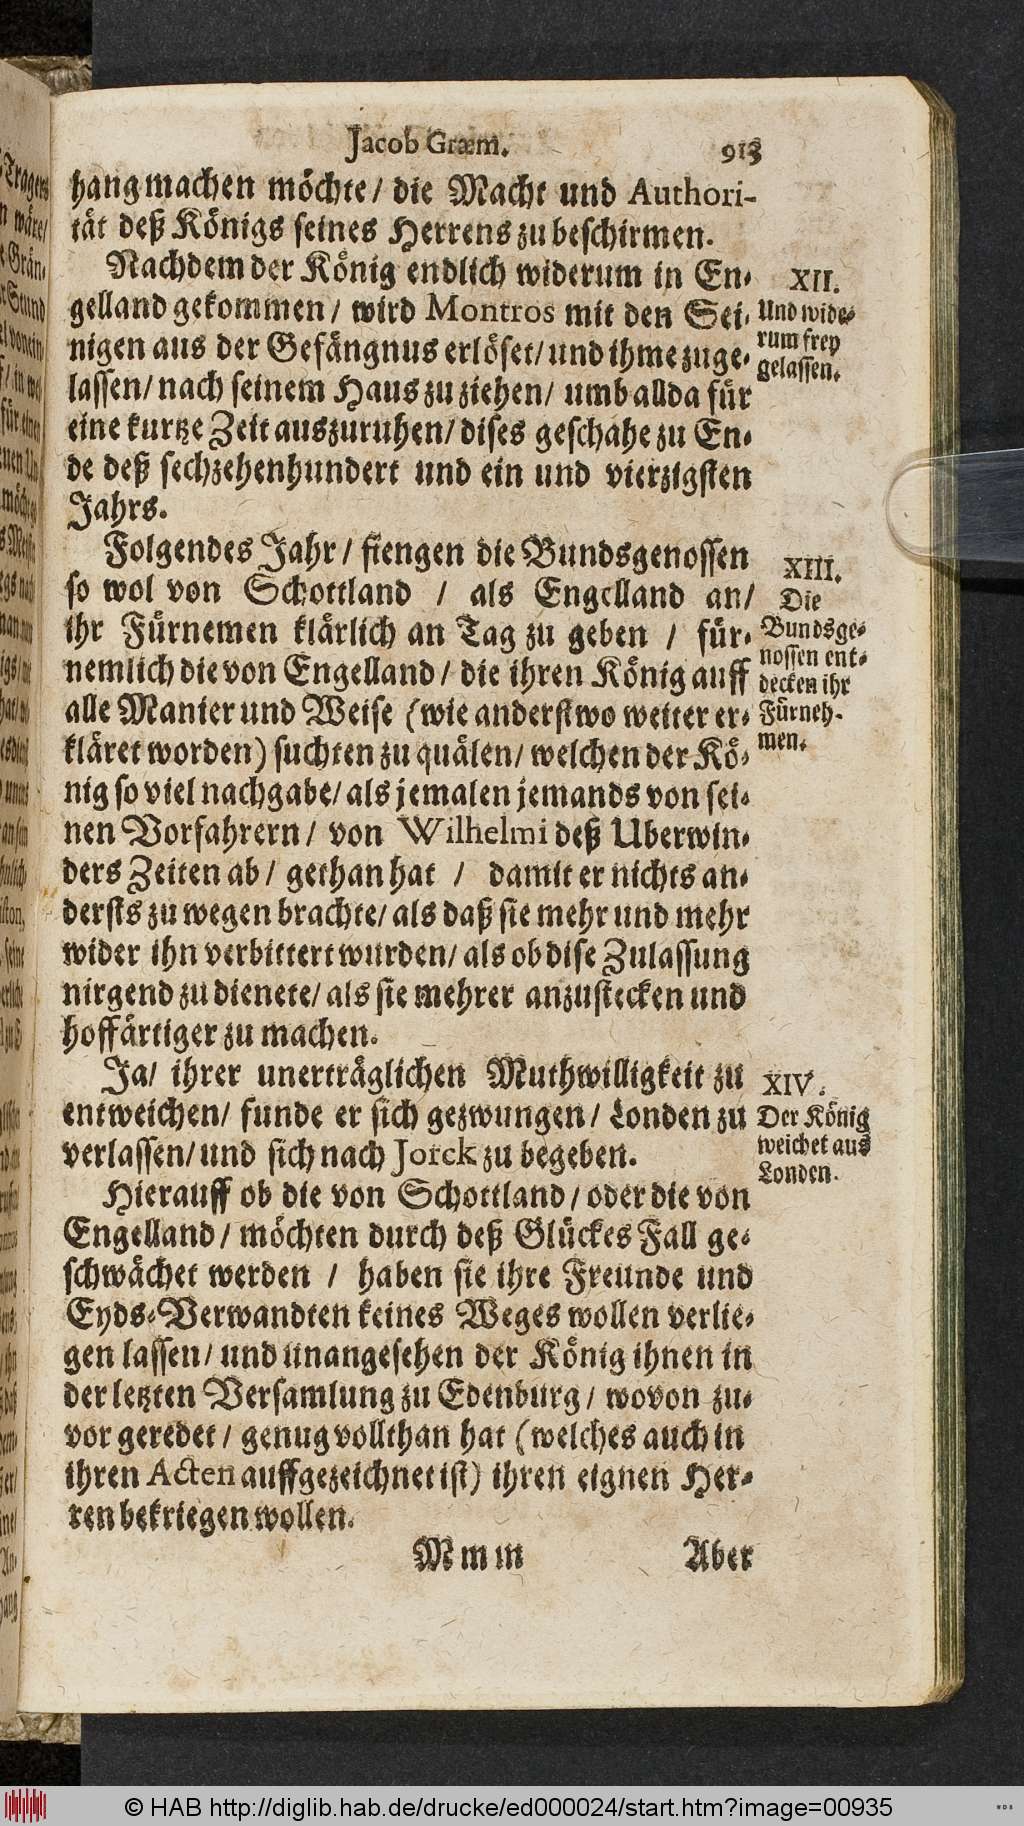 Jacob Græm. 913
hang machen möchte/ die Macht und Authori-
tät deß Königs seines Herrens zu beschirmen.
Nachdem der König endlich widerum in En-
gelland gekommen/ wird Montros mit den Sei-
nigen aus der Gefängnus erlöset/ und ihme zuge-
lassen/ nach seinem Haus zu ziehen/ umb allda für
eine kurtze Zeit auszuruhen/ dises geschahe zu En-
de deß sechzehenhundert und ein und vierzigsten
Jahrs.
XII.
Und wide-
rum frey
gelassen.
Folgendes Jahr/ fiengen die Bundsgenossen
so wol von Schottland / als Engelland an/
ihr Fürnemen klärlich an Tag zu geben / für-
nemlich die von Engelland/ die ihren König auff
alle Manier und Weise (wie anderstwo weiter er-
kläret worden) suchten zu quälen/ welchen der Kö-
nig so viel nachgabe/ als jemalen jemands von sei-
nen Vorfahrern/ von Wilhelmi deß Uberwin-
ders Zeiten ab/ gethan hat / damit er nichts an-
dersts zu wegen brachte/ als daß sie mehr und mehr
wider ihn verbittert wurden/ als ob dise Zulassung
nirgend zu dienete/ als sie mehrer anzustecken und
hoffärtiger zu machen.
XIII.
Die
Bundsge-
nossen ent-
decken ihr
Fürneh-
men.
Ja/ ihrer unerträglichen Muthwilligkeit zu
entweichen/ funde er sich gezwungen/ Londen zu
verlassen/ und sich nach Jorck zu begeben.
XIV.
Der König
weichet aus
Londen.
Hierauff ob die von Schottland/ oder die von
Engelland/ möchten durch deß Glückes Fall ge-
schwächet werden / haben sie ihre Freunde und
Eyds-Verwandten keines Weges wollen verlie-
gen lassen/ und unangesehen der König ihnen in
der letzten Versamlung zu Edenburg/ wovon zu-
vor geredet/ genug vollthan hat (welches auch in
ihren Acten auffgezeichnet ist) ihren eignen Her-
ren bekriegen wollen.
Mmm Aber
© HAB http://diglib.hab.de/drucke/ed000024/start.htm?image=00935